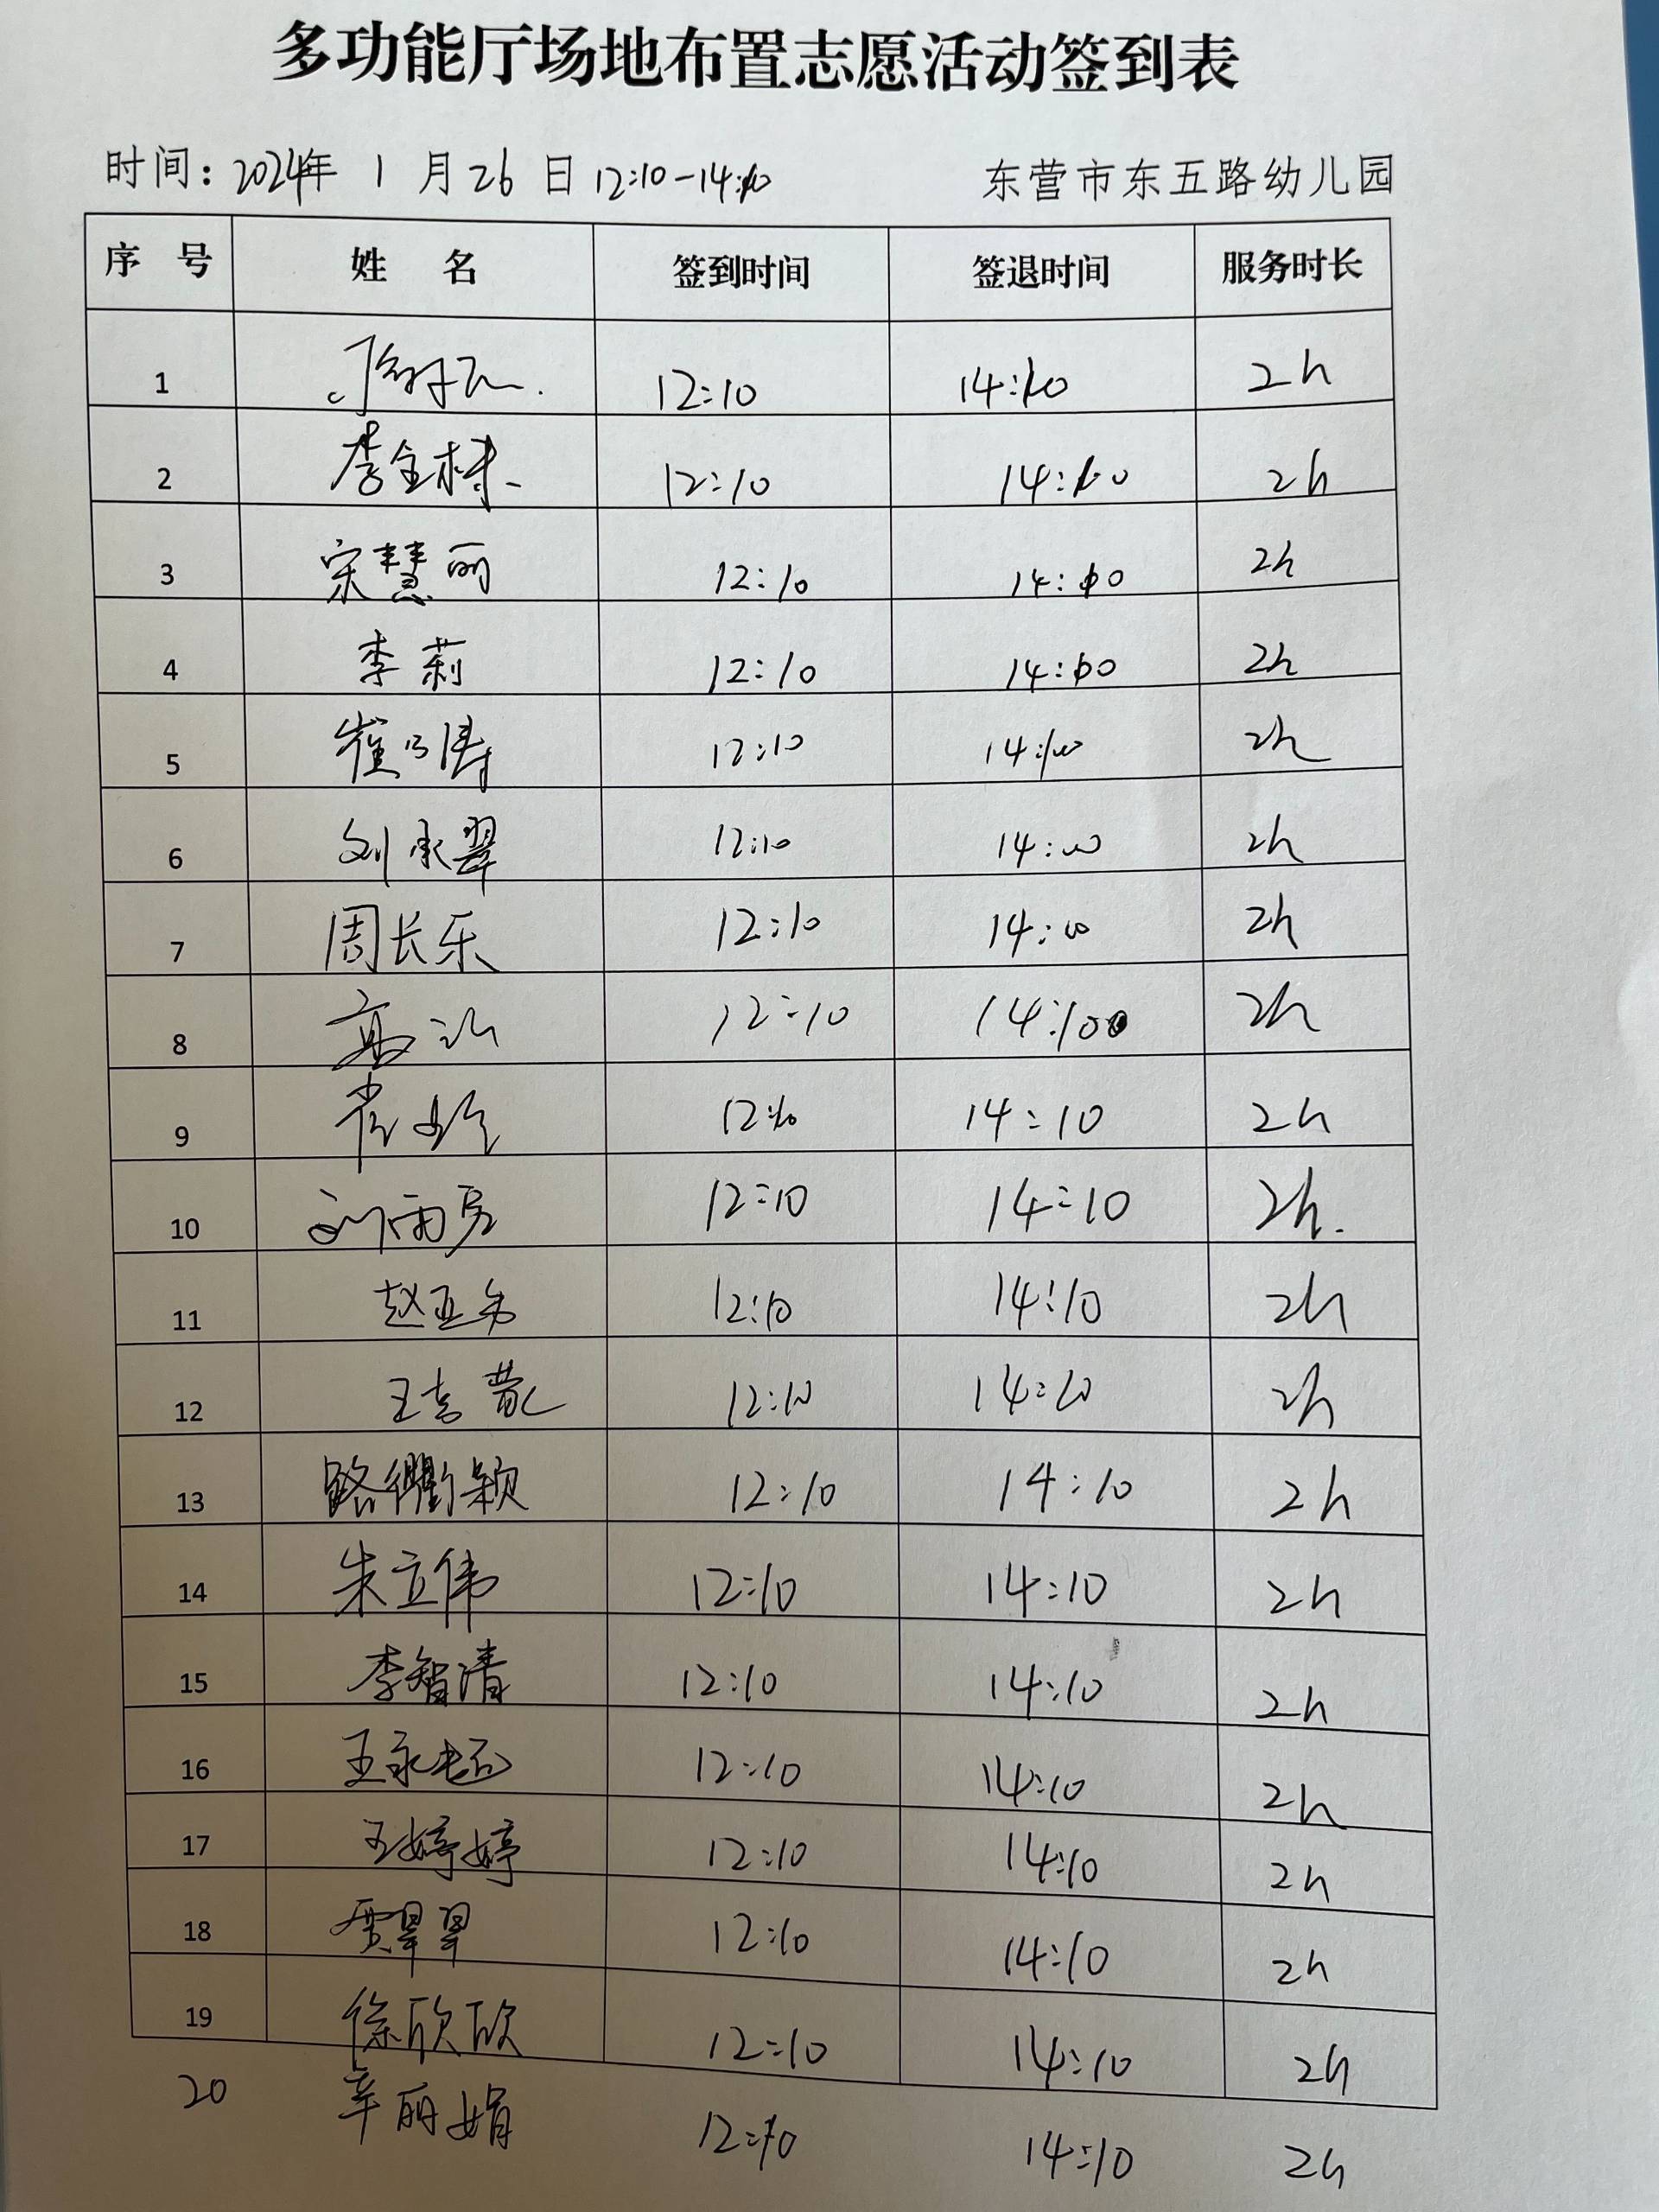 多功能厅场地布置志愿活动签到表
时间：2024年 1 月 26 日 12:10-14:10 东营市东五路幼儿园
序 号 姓 名 签到时间 签退时间 服务时长
1 12:10 14:10 2h
2 李全梯 12:10 14:10 2h
3 宋慧丽 12:10 14:10 2h
4 李莉 12:10 14:10 2h
5 崔乃涛 12:10 14:10 2h
6 刘承翠 12:10 14:00 2h
7 周长乐 12:10 14:00 2h
8 高 12:10 14:10 2h
9 12:10 14:10 2h
10 刘雨 12:10 14:10 2h
11 赵亚 12:10 14:10 2h
12 王吉 12:10 14:10 2h
13 路衢颖 12:10 14:10 2h
14 朱立伟 12:10 14:10 2h
15 李智清 12:10 14:10 2h
16 王永 12:10 14:10 2h
17 王婷婷 12:10 14:10 2h
18 贾翠翠 12:10 14:10 2h
19 徐欣欣 12:10 14:10 2h
20 辛丽娟 12:10 14:10 2h